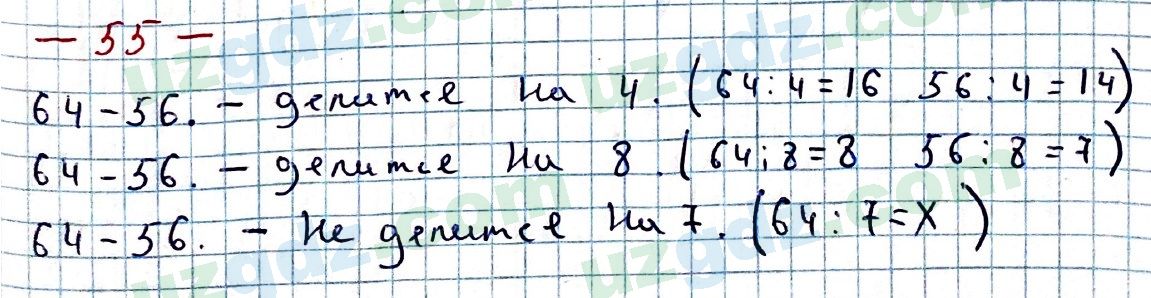 — 55 —
64-56. - делится на 4. (64:4=16 56:4=14)
64-56. - делится на 8. (64:8=8 56:8=7)
64-56. - не делится на 7. (64:7=х)
uzgdz.com